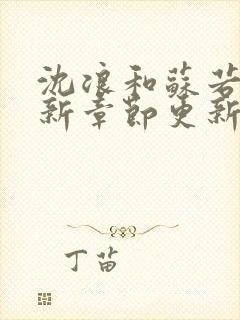 沈浪和蘇若
新章節更新
丁苗